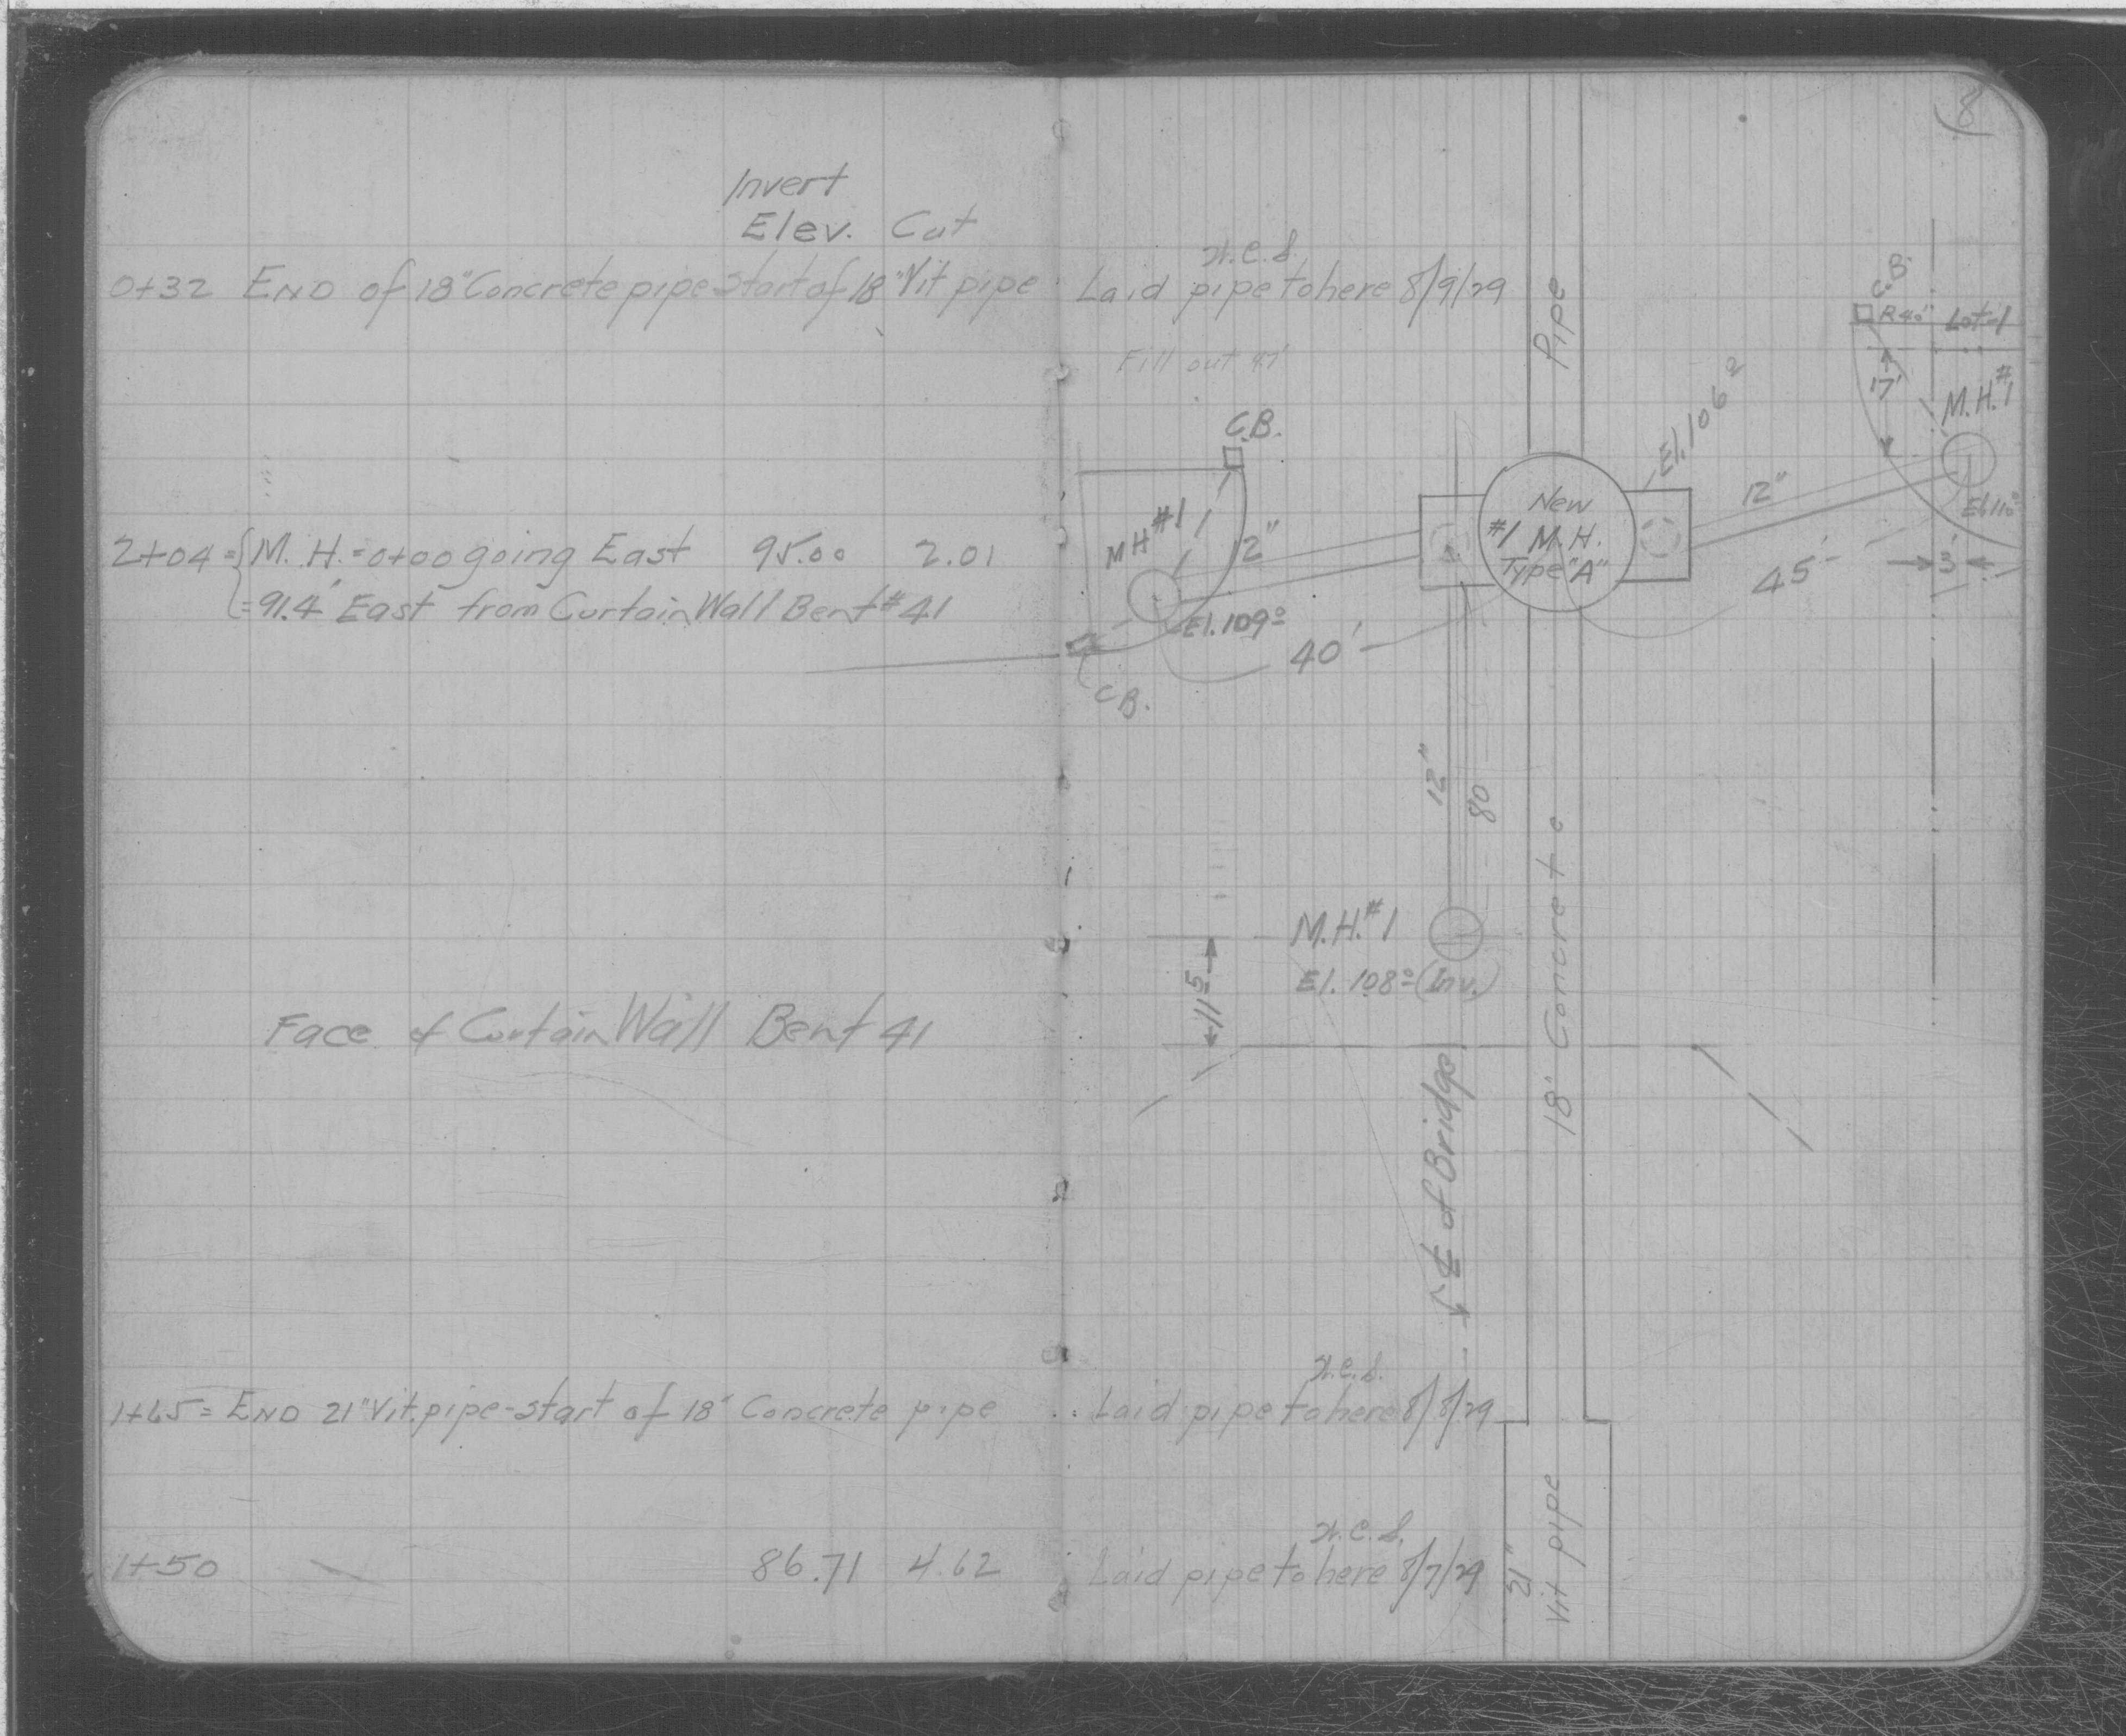 8
Invert
Elev. Cut
0+32 END of 18" Concrete pipe start of 18" Vit pipe
2+04 = { M. H. = 0+00 going East 95.00 2.01
= 91.4' East from Curtain Wall Bent #41
Face of Curtain Wall Bent 41
1+65 = END 21" Vit. pipe - start of 18" Concrete pipe
1+50 86.71 4.62
Laid pipe to here 8/9/29
Fill out
Pipe
C.B.
R 40'
Lot-1
17'
M.H. #1
El. 110º
3'
El. 106²
12"
45'
New
#1 M.H.
Type "A"
C.B.
MH #1
12"
El. 109º
40'
C.B.
12"
80
M.H. #1
El. 108º (Inv.)
11⁵
18" Concrete
℄ of Bridge
Laid pipe to here 8/8/29
Laid pipe to here 8/7/29
21"
Vit pipe